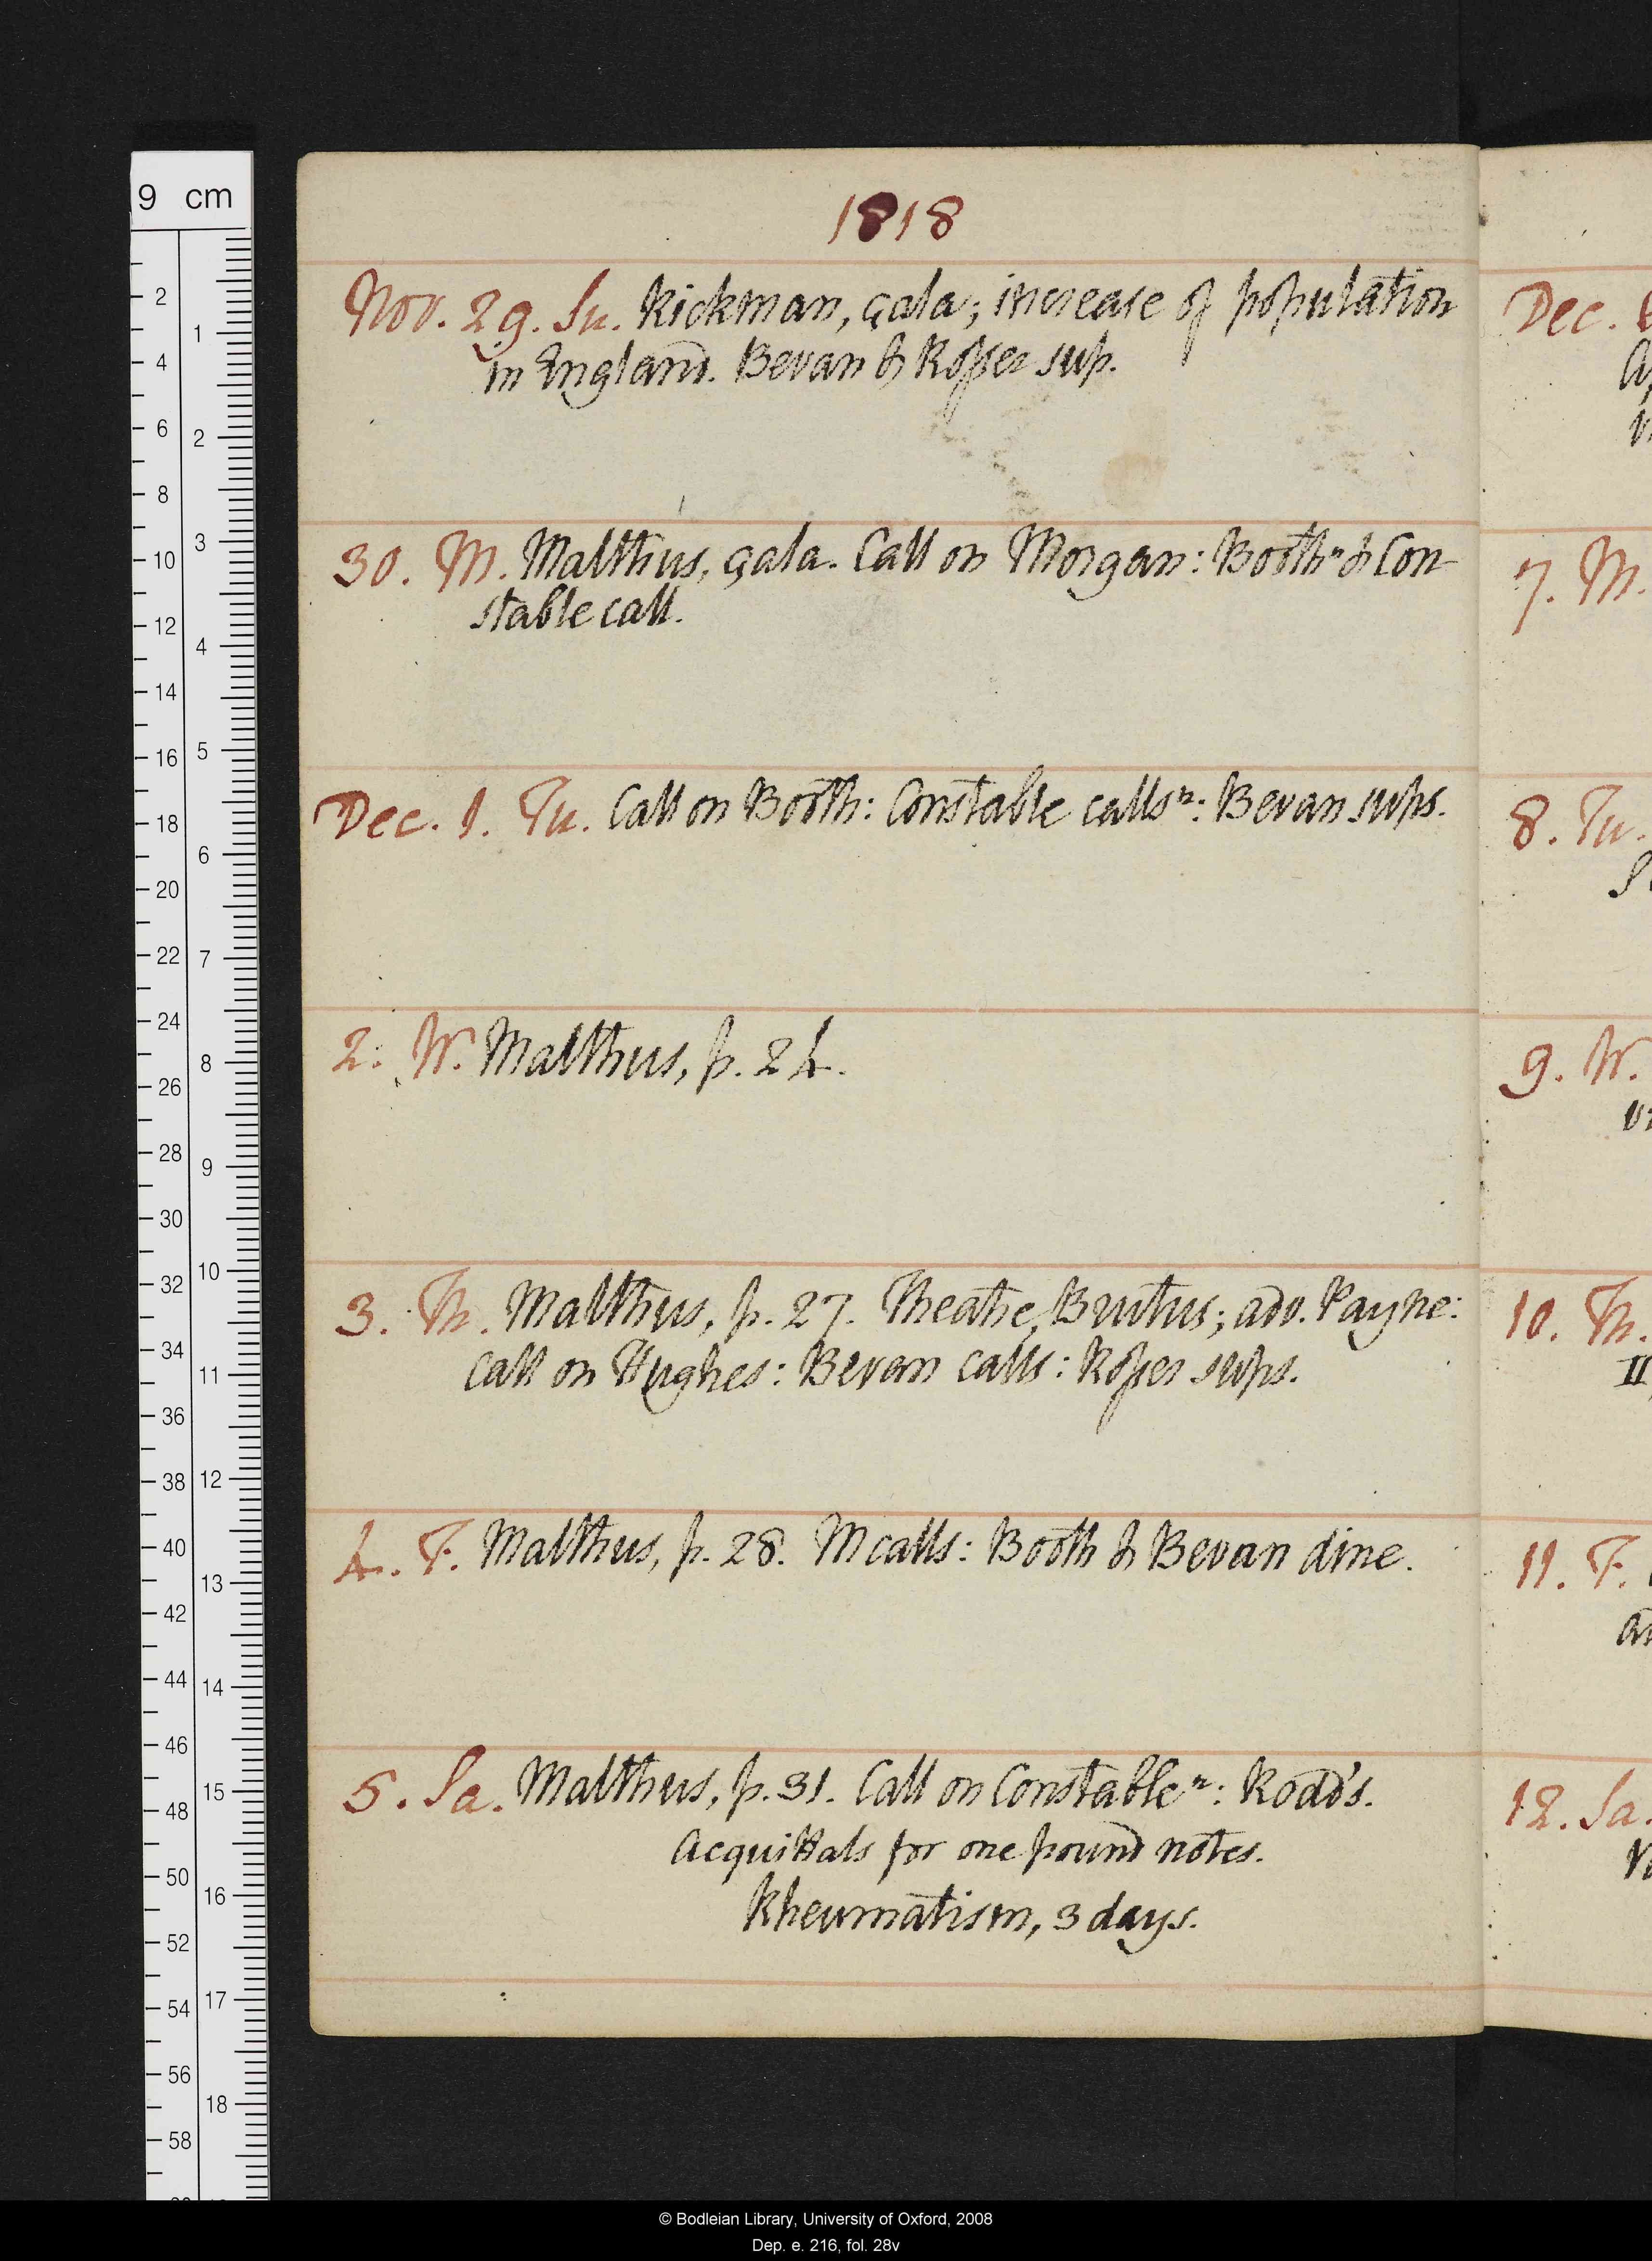 1818
Nov. 29. Su. Rickman, çala; increase of population
in England. Bevan & Roper sup.
30. M. Malthus, çala. Call on Morgan: Booth n & Con-
stable call.
Dec. 1. Tu. Call on Booth: Constable calls n: Bevan sups.
2. W. Malthus, p. 24.
3. Th. Malthus, p. 27. Theatre, Brutus; adv. Payne:
call on Hughes: Bevan calls: Roper sups.
4. F. Malthus, p. 28. M calls: Booth & Bevan dine.
5. Sa. Malthus, p. 31. Call on Constable n: Rodd's.
Acquittals for one pound notes.
Rheumatism, 3 days.
Dec.
7. M.
8. Tu.
9. W.
10. Th.
II
11. F.
12. Sa.
9 cm
2
4
6
8
10
12
14
16
18
20
22
24
26
28
30
32
34
36
38
40
42
44
46
48
50
52
54
56
58
1
2
3
4
5
6
7
8
9
10
11
12
13
14
15
16
17
18
© Bodleian Library, University of Oxford, 2008
Dep. e. 216, fol. 28v